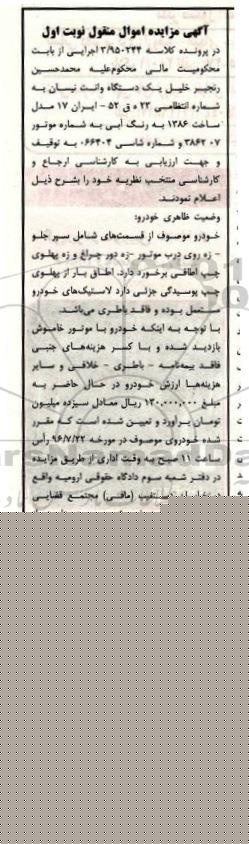 آگهی مزایده اموال منقول نوبت اول
در پرونده کلاسه ۳/۹۵۰۲۴۴ اجرایی از بابت
محکومیت مالی محکوم‌علیه محمدحسین
رنجبر خلیل یک دستگاه وانت نیسان به
شماره انتظامی ۲۳ ق ۵۲ - ایران ۱۷ مدل
ساخت ۱۳۸۶ به رنگ آبی به شماره موتور
۳۸۶۲۰۷ و شماره شاسی ۰۶۶۴۰۴ به توقیف
و جهت ارزیابی به کارشناسی ارجاع و
کارشناسی منتخب نظریه خود را بشرح ذیل
اعلام نمودند.
وضعیت ظاهری خودرو:
خودرو موصوف از قسمت‌های شامل سپر جلو
- زه روی درب موتور - زه دور چراغ و زه پهلوی
چپ اطاقی برخورد دارد. اطاق بار از پهلوی
چپ پوسیدگی جزئی دارد لاستیک‌های خودرو
مستعمل بوده و فاقد باطری می‌باشد.
با توجه به اینکه خودرو با موتور خاموش
بازدید شده و با کسر هزینه‌های جنبی
فاقد بیمه‌نامه - باطری - خلافی و سایر
هزینه‌ها ارزش خودرو در حال حاضر به
مبلغ ۱۳۰,۰۰۰,۰۰۰ ریال معادل سیزده میلیون
تومان برآورد و تعیین شده است که مقرر
شده خودروی موصوف در مورخه ۹۶/۷/۲۲ رأس
ساعت ۱۱ صبح به وقت اداری از طریق مزایده
در دفتر شعبه سوم دادگاه حقوقی ارومیه واقع
(مافی) مجتمع قضایی